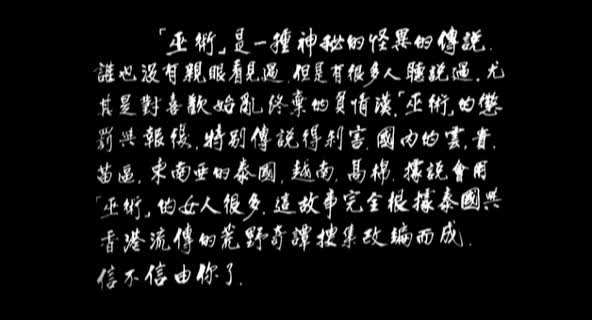 「巫術」是一種神秘的怪異的傳說.
誰也沒有親眼看見過.但是有很多人聽說過.尤
其是對喜歡始亂終棄的負情漢.「巫術」的懲
罰與報復.特別傳說得利害.國內的雲.貴.
苗區.東南亞的泰國.越南.高棉.據說會用
「巫術」的女人很多.這故事完全根據泰國與
香港流傳的荒野奇譚搜集改編而成.
信不信由你了.